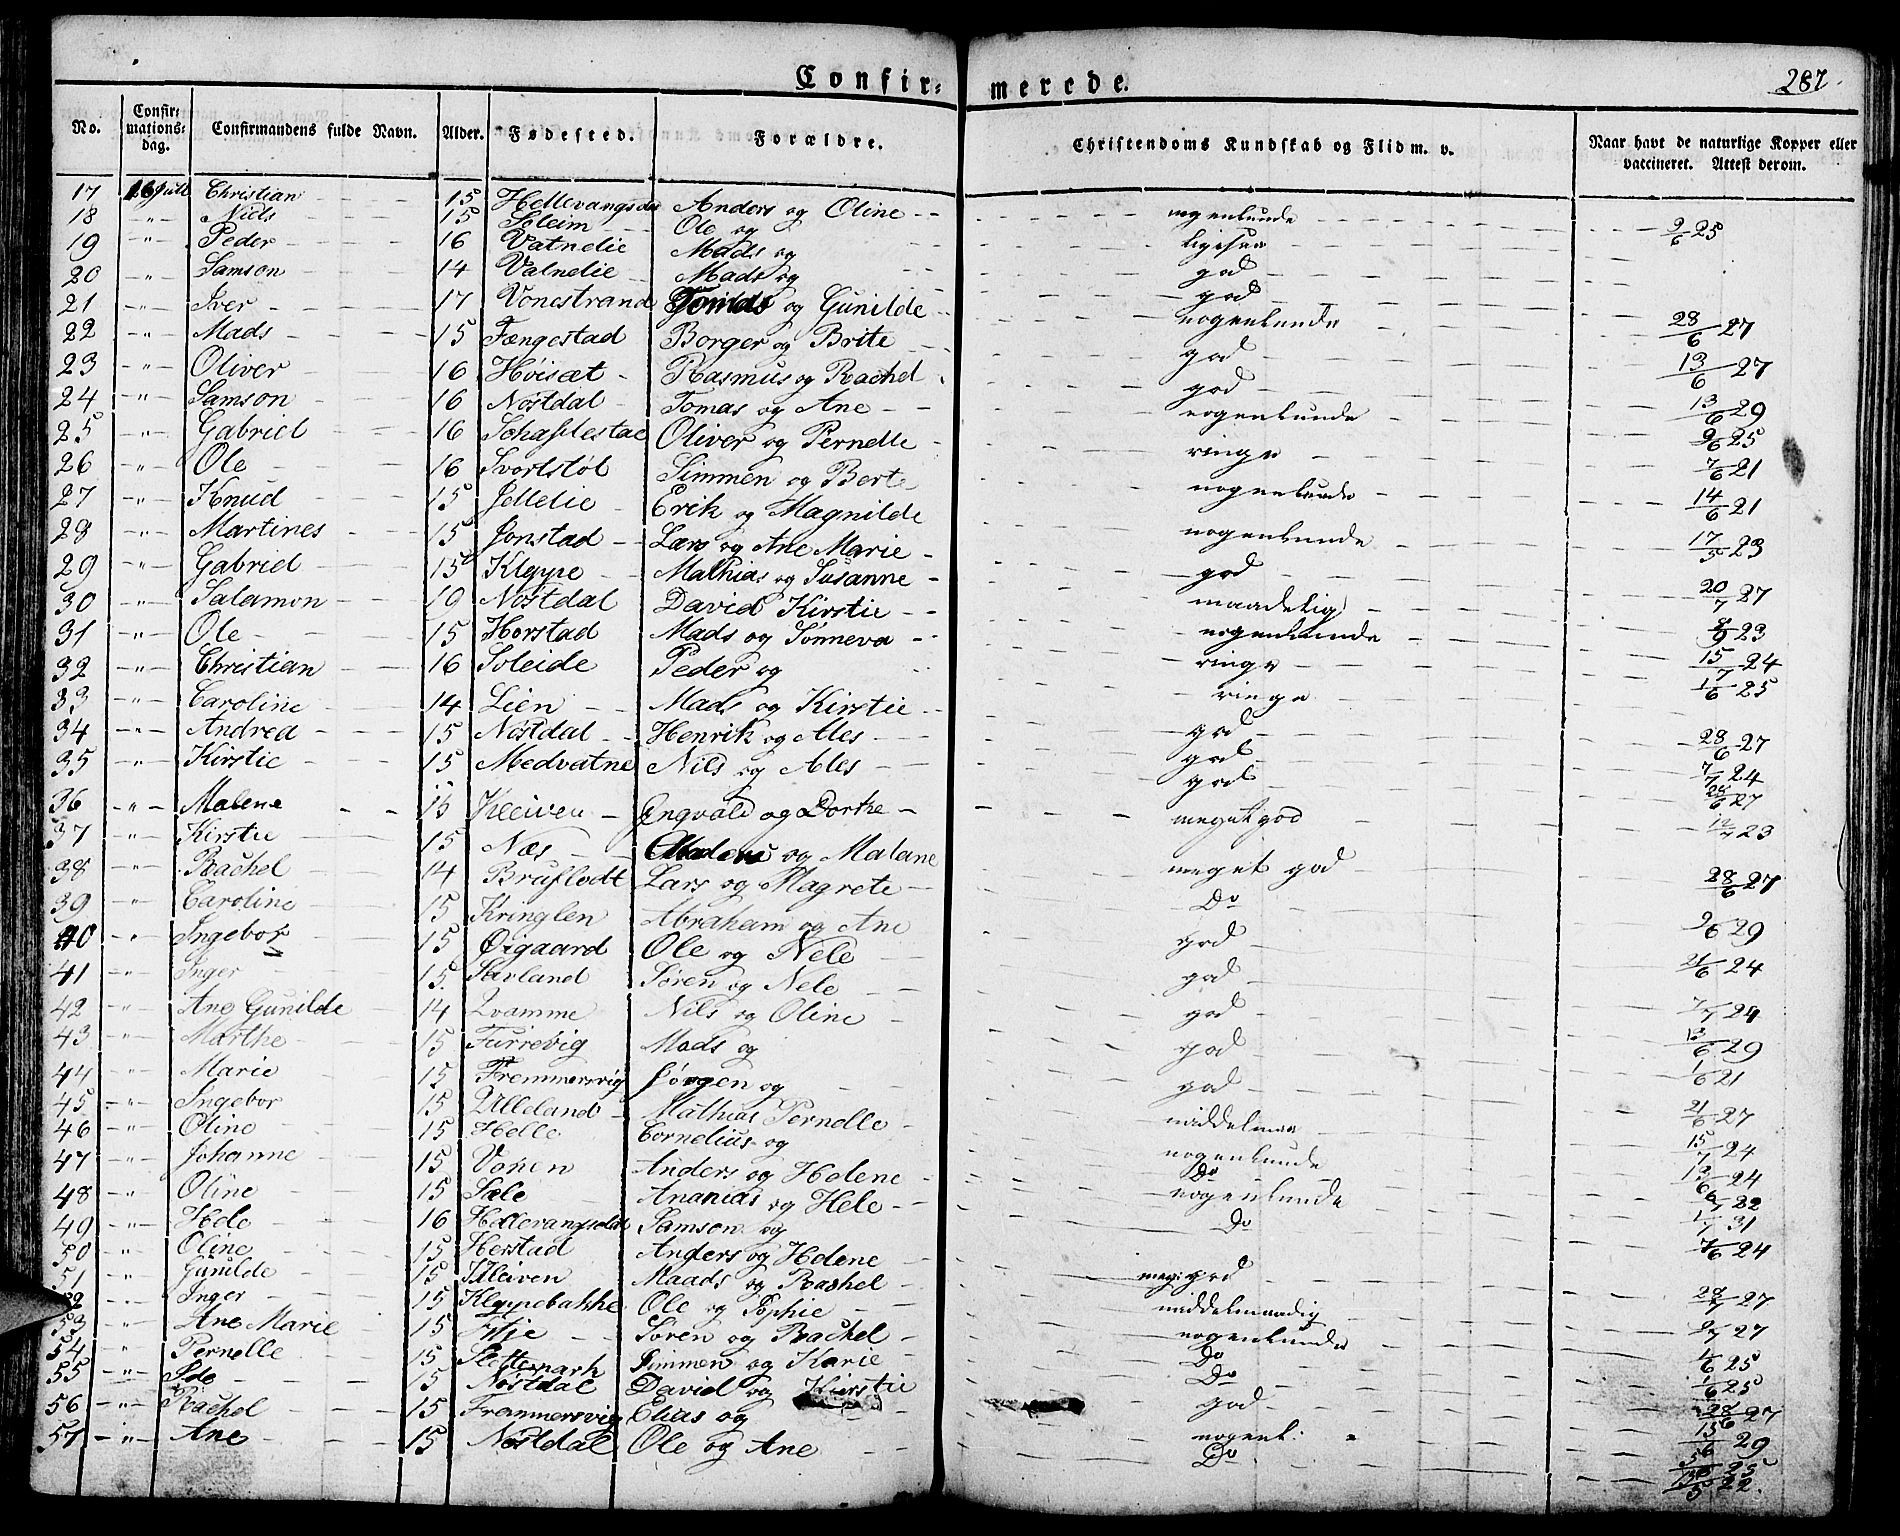 Confir= merede. 287.
No. Confir=mations=dag. Confirmandens fulde Navn. Alder. Fødested. Forældre. Christendoms Kundskab og Flid m. v. Naar havt de naturlige Kopper eller vaccineret. Attest derom.
17 Christian 15 Anders og Oline nogenlunde 9/6 25
18 " Niels 15 Soleim Ole og ligesaa
19 " Peder 16 Vatnelie Mads og god
20 " Samson 14 Vatnelie Mads og god
21 " Iver 17 Vonestrand og Gunilde nogenlunde 28/6 27
22 " Mads 15 Fængestad Borger og Brite god 13/6 27
23 " Oliver 16 Høisæt Rasmus og Rachel god 13/6 29
24 " Samson 16 Nostdal Tomas og Ane nogenlunde 25
25 " Gabriel 16 Oliver og Pernelle ringe 7/6 21
26 " Ole 16 Svortstøl Simmen og Berte nogenlunde 14/6 21
27 " Knud 15 Jellelie Erik og Magnilde nogenlunde 17/5 23
28 " Martines 15 Jonstad Lars og Ane Marie god 20/7 27
29 " Gabriel 15 Kleppe Mathias og Susanne maadelig 23
30 " Salamon 19 Nostdal David Kirstie nogenlunde 15/7 24
31 " Ole 15 Horstad Mads og Sønneva ringe 1/6 25
32 " Christian 16 Soleide Peder og ringe
33 " Caroline 14 Lien Mads og Kirstie god 28/6 27
34 " Andrea 15 Nostdal Henrik og Ales god 7/7 24
35 " Kirstie 15 Medvatne Nils og Ales god 28/6 27
36 " Malene 15 Kleiven Engvald og Dorthe meget god 12/7 23
37 " Kirstie 15 Næs og Malane meget god 28/6 27
38 " Rachel 14 Bruflodt Lars og Magrete Do
39 " Caroline 15 Kringlen Abraham og Ane god 29
40 " Ingebor 15 Øigaard Ole og Nele god 21/6 24
41 " Inger 15 Sørland Søren og Nele god 7/7 24
42 " Ane Gunilde 14 Qvamme Nils og Oline god 29
43 " Marthe 15 Furrevig Mads og god 1/6 21
44 " Marie 15 Fremmersvig Jørgen og middelmaa 21/6 27
45 " Ingebor 15 Ulleland Mathias Pernelle nogenlunde 15/7 24
46 " Oline 15 Helle Cornelius og Do 24
47 " Johanne 15 Vonen Anders og Helene nogenlunde 22
48 " Oline 15 Sæle Ananias og Hele Do 31
49 " Hele 16 Samson og 7/6 24
50 " Oline 15 Herstad Anders og Helene god
51 " Gunilde 15 Kleiven Maads og Rashel middelmaadig 27
52 " Inger 15 Kleppebakke Ole og Sophie nogenlunde 27
53 " Ane Marie 15 Søren og Rachel Do 1/6 25
54 " Pernelle 15 Slettemark Simmen og Karie Do 1/6 25
55 " 15 Nøstdal David og Kirstie god 28/6 27
56 " Rachel 15 Fremmersvig Elias og nogenl: 29
57 " Ane 15 Nøstdal Ole og Ane Do 25
22.